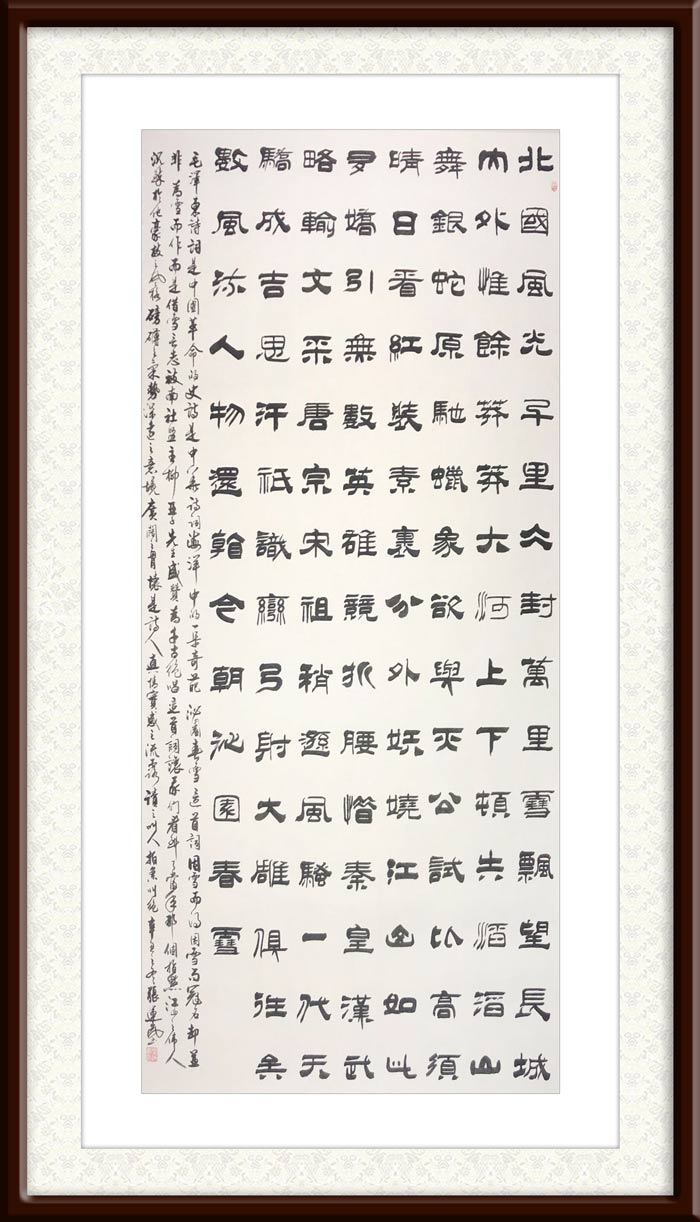 北國風光千里冰封萬里雪飄望長城
內外惟餘莽莽大河上下頓失滔滔山
舞銀蛇原馳蠟象欲與天公試比高須
晴日看紅裝素裹分外妖嬈江山如此
多嬌引無數英雄競折腰惜秦皇漢武
略輸文采唐宗宋祖稍遜風騷一代天
驕成吉思汗祇識彎弓射大雕俱往矣
數風流人物還看今朝沁園春雪
毛澤東詩詞是中國革命的史詩是中華詩詞海洋中的一朵奇葩沁園春雪這首詞因雪而得因雪而冠名却並
非為雪而作而是借雪言志被南社盟主柳亞子先生盛贊為千古絕唱這首詞讓我們看到了當年那個指點江山之偉人
沉浸於他豪放之風格磅礴之氣勢深遠之意境廣闊之胸懷是詩人真情實感之流露讀之叫人拍案叫絕辛丑之冬張連武